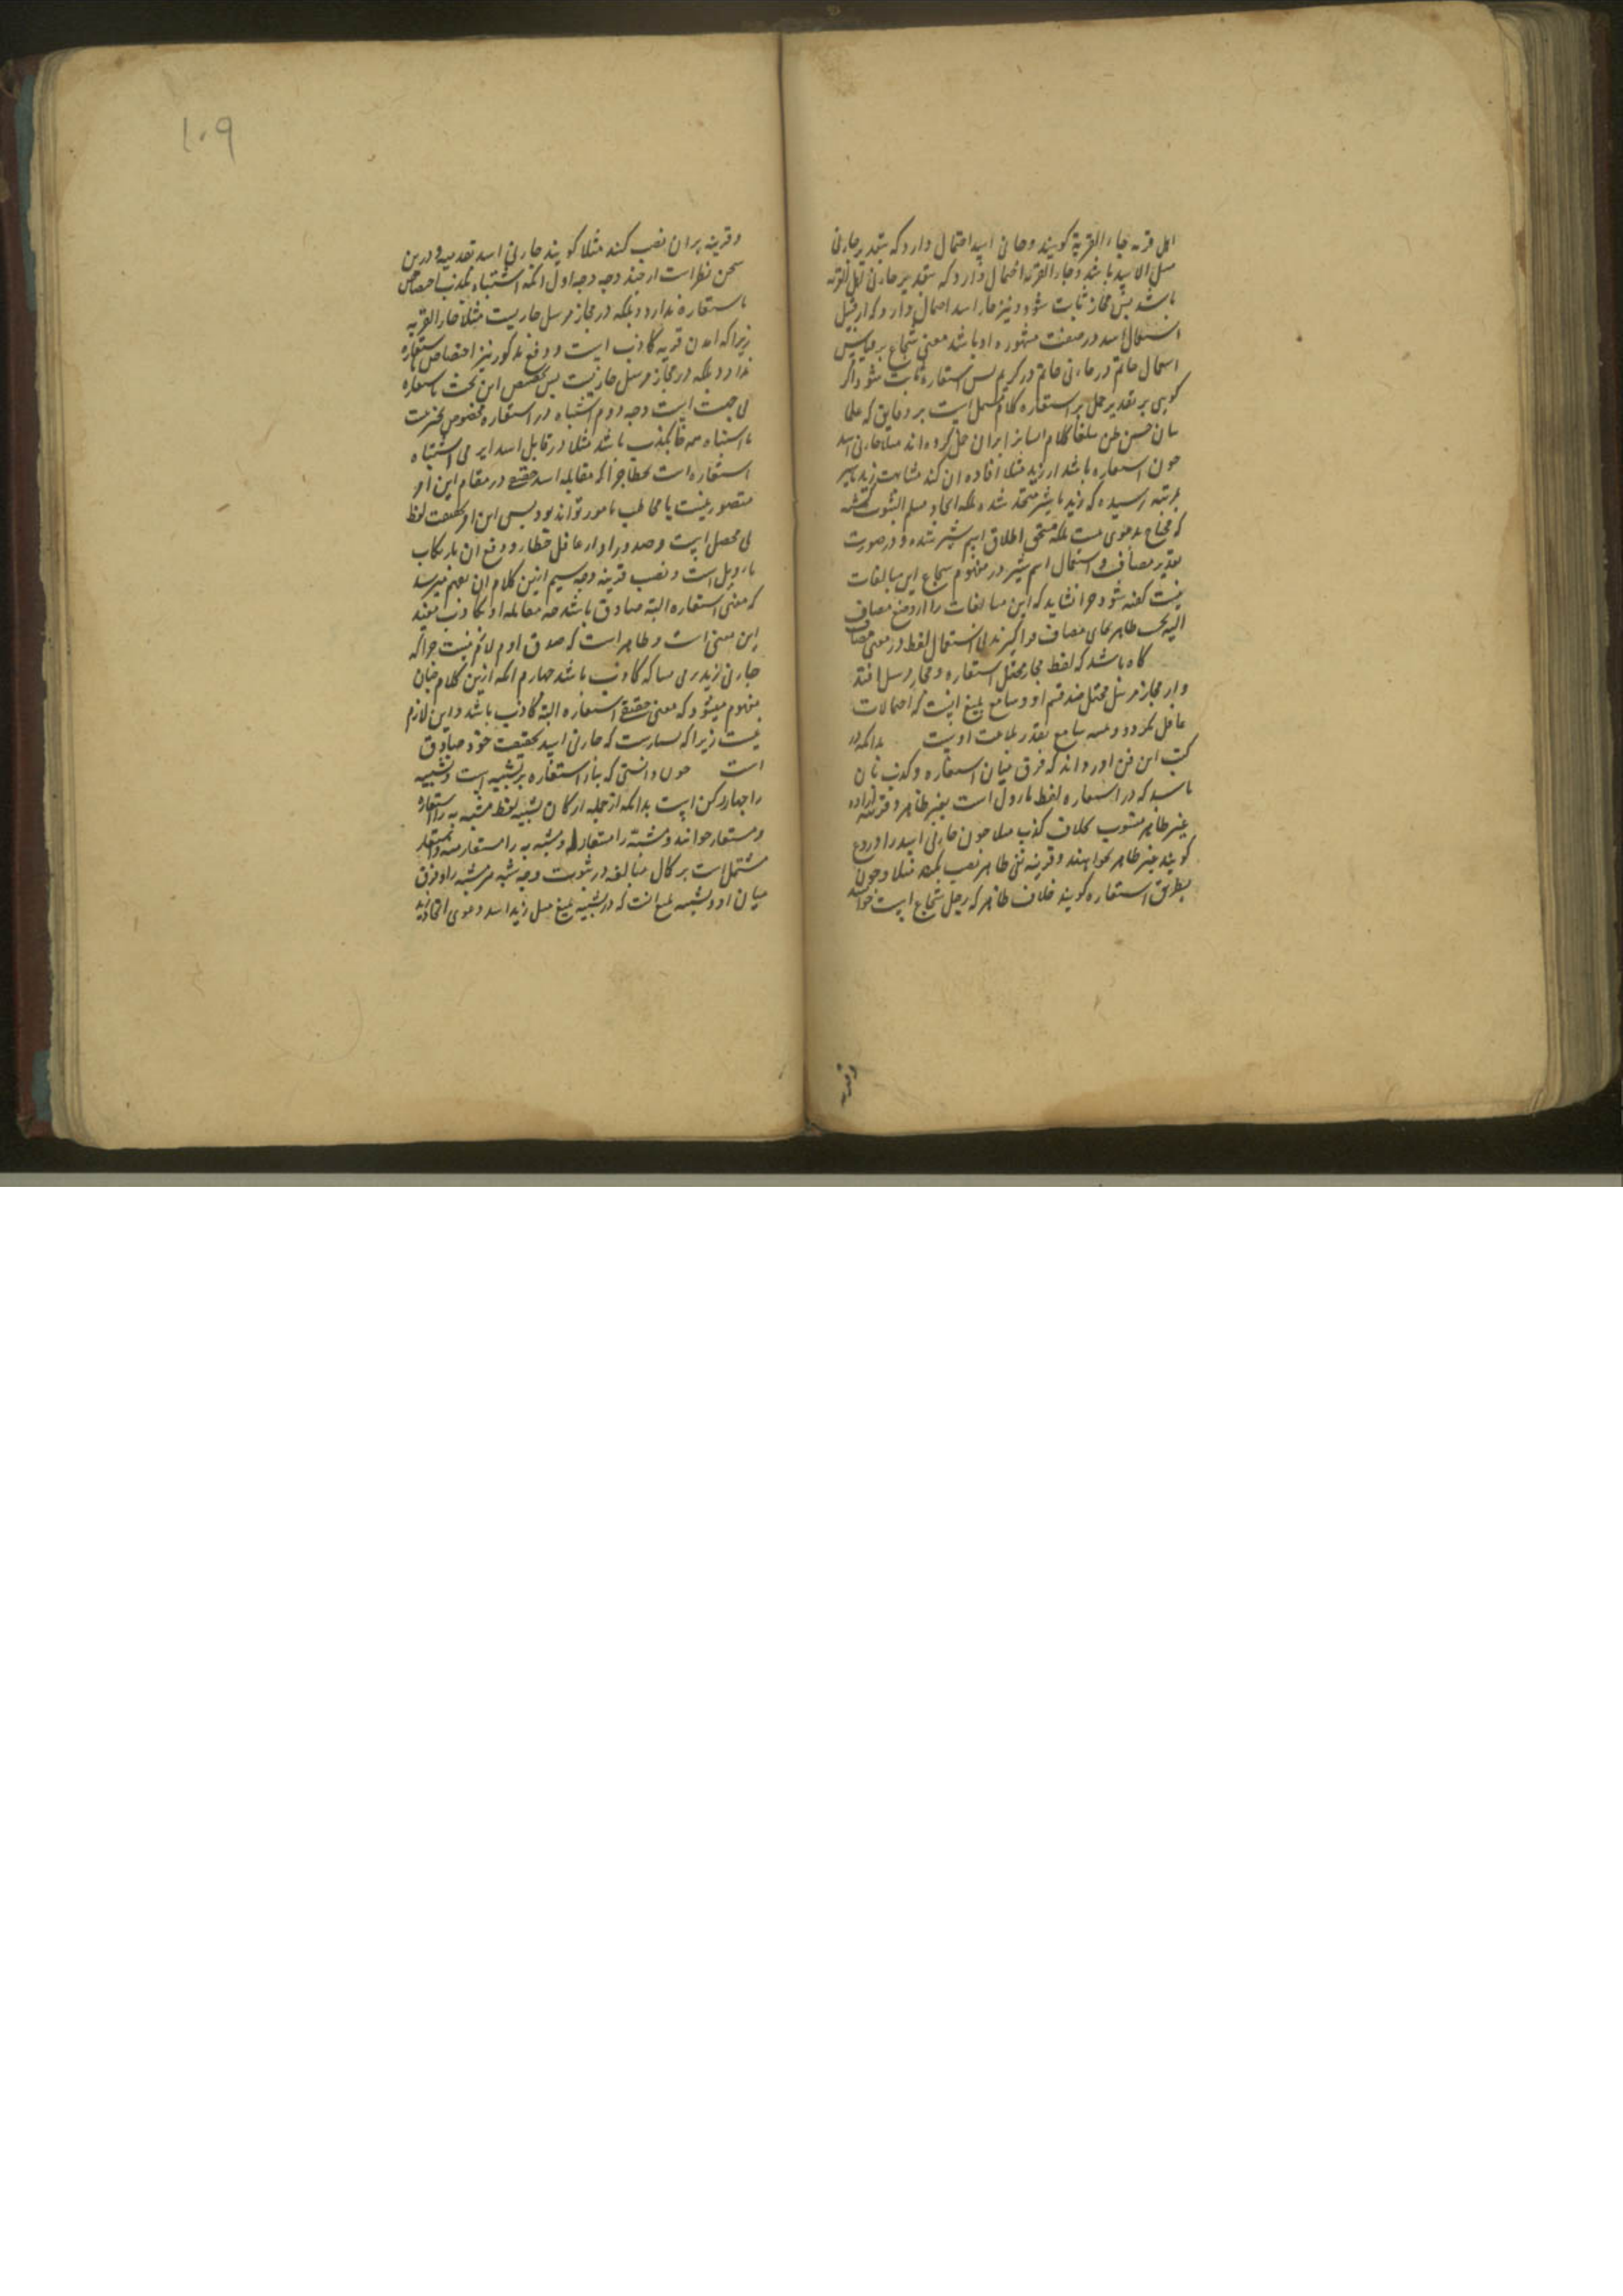 اهل قریه جاء القریة کویند وجانی اسد احتمال دارد که بتقدیر جانی
مثل الاسد باشد وجاء القریه احتمال دارد که بتقدیر جانی اهل القریه
باشد پس مجاز ثابت شود ونیز جاء اسد احتمال دارد که از قبیل
استعمال اسد در صفت مشهوره او باشد معنی شجاع بر قیاس
استعمال حاتم در جانی حاتم در کریم پس استعاره ثابت شود واکر
کویی بر تقدیر حمل بر استعاره کلام مشتمل است بر دقایق که علما
بیان حسن ظن بلغا کلام ایشانرا بران حمل کرده اند مثلا جانی اسد
چون استعاره باشد از زید مثلا افاده ان کند مشابهت زید بشیر
بمرتبه رسیده که زید با شیر متحد شده بلکه اتحاد مسلم الثبوت کشته
که محتاج بدعوی نیست بلکه مستحق اطلاق اسم شیر شده و در صورت
تقدیر مضاف واستعمال اسم شیر در مفهوم شجاع این مبالغات
نیست کفته شود چرا نشاید که این مبالغات را از وضع مضاف
الیه بحسب ظاهر بجای مضاف فرا کیرند بی استعمال لفظ در معنی مضاف
کاه باشد که لفظ مجاز محتمل استعاره ومجاز مرسل افتد
واز مجاز مرسل محتمل چند قسم او وسامع بلیغ اینست که احتمالات
غافل نکردد وتنبه سامع بقدر بلاغت اوست بدانکه در
کتب این فن اورده اند که فرق میان استعاره وکذب بان
باشد که در استعاره لفظ ماول است بغیر ظاهر وقرینه اراده
غیر ظاهر منصوب بخلاف کذب مثلا چون جانی اسد را دروغ
کویند غیر ظاهر نخواهند وقرینه نفی ظاهر نصب نکند مثلا وچون
بطریق استعاره کویند خلاف ظاهر که رجل شجاع است خواهند
وقرینه
۱۰۹
وقرینه بران نصب کنند مثلا کویند جانی اسد و درین
سخن نظر است از چند وجه وجه اول انکه اشتباه بکذب اختصاص
باستعاره ندارد وبلکه در مجاز مرسل جاریست مثلا جاء القریه
زیرا که امدن قریه کاذب است ودفع مذکور نیز اختصاص باستعاره
ندارد بلکه در مجاز مرسل جاریست پس تخصیص این بحث باستعاره
بی جهت است وجه دوم اشتباه در استعاره مخصوص بخبر نیست
تا اشتباه همه جا بکذب باشد مثلا در قابل اسدا یرمی اشتباه
استعاره است بخطا چرا که مقابله اسد حقیقی در مقام این امر
متصور نیست یا مخاطب مامور نتواند بود پس این امر بحقیقت لفظ
بی محصل است وصدور او از عاقل خطا ودفع ان بارتکاب
تاویل است ونصب قرینه وجه سیم ازین کلام ان بفهم میرسد
که معنی استعاره البته صادق باشد چه مقابله او بکاذب مفید
این معنی است وظاهر است که صدق او م لازم نیست چرا که
جانی زید رمی بسا که کاذب باشد چهارم انکه ازین کلام چنان
مفهوم میشود که معنی حقیقی استعاره البته کاذب باشد واین لازم
نیست زیرا که بسیارست که جانی اسد بحقیقت خود صادق
است چون دانستی که بناء استعاره بر تشبیه است وتشبیه
را چهار رکن است بدانکه از جمله ارکان تشبیه لفظ مشبه به را استعاره
ومستعار خوانند ومشبه را مستعار له ومشبه به را مستعار منه واستعاره
مشتمل است بر کمال مبالغه در ثبوت وجه شبه مر مشبه را وفرق
میان او وتشبیه بلیغ انست که در تشبیه بلیغ مثل زید اسد دعوی اتحاد زید